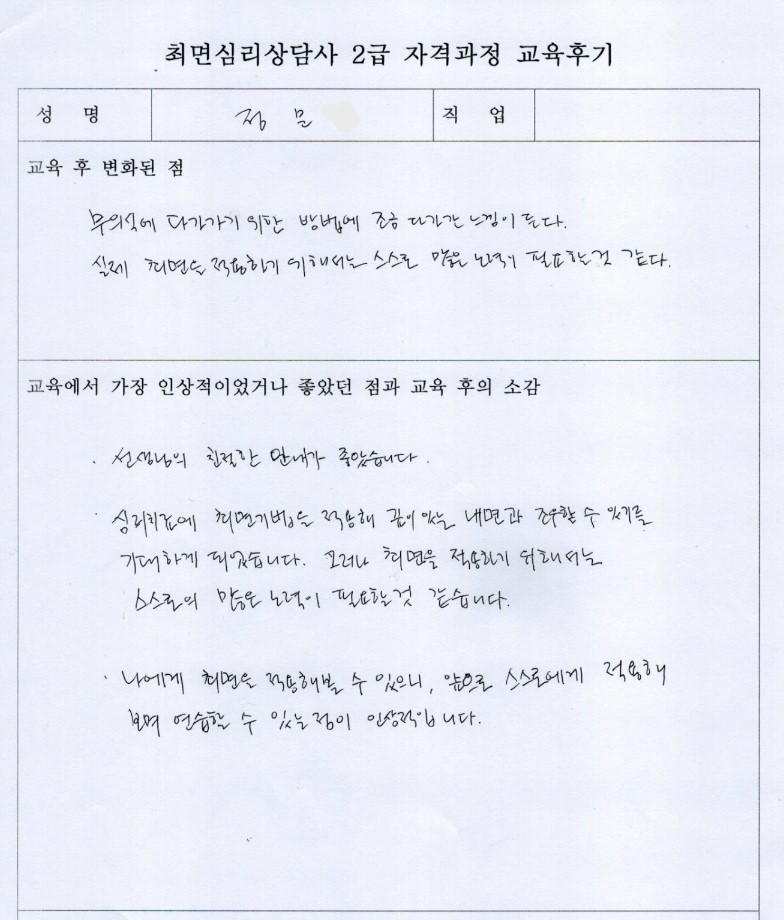 최면심리상담사 2급 자격과정 교육후기
성 명 정 문 직 업
교육 후 변화된 점
무의식에 다가가기 위한 방법에 조금 다가간 느낌이 든다.
실제 최면을 적용하기 위해서는 스스로 많은 노력이 필요할것 같다.
교육에서 가장 인상적이었거나 좋았던 점과 교육 후의 소감
· 선생님의 친절한 안내가 좋았습니다.
· 심리치료에 최면기법을 적용해 깊이 있는 내면과 조우할 수 있기를
기대하게 되었습니다. 그러나 최면을 적용하기 위해서는
스스로의 많은 노력이 필요할것 같습니다.
· 나에게 최면을 적용해볼 수 있으니, 앞으로 스스로에게 적용해
보며 연습할 수 있는점이 인상적입니다.